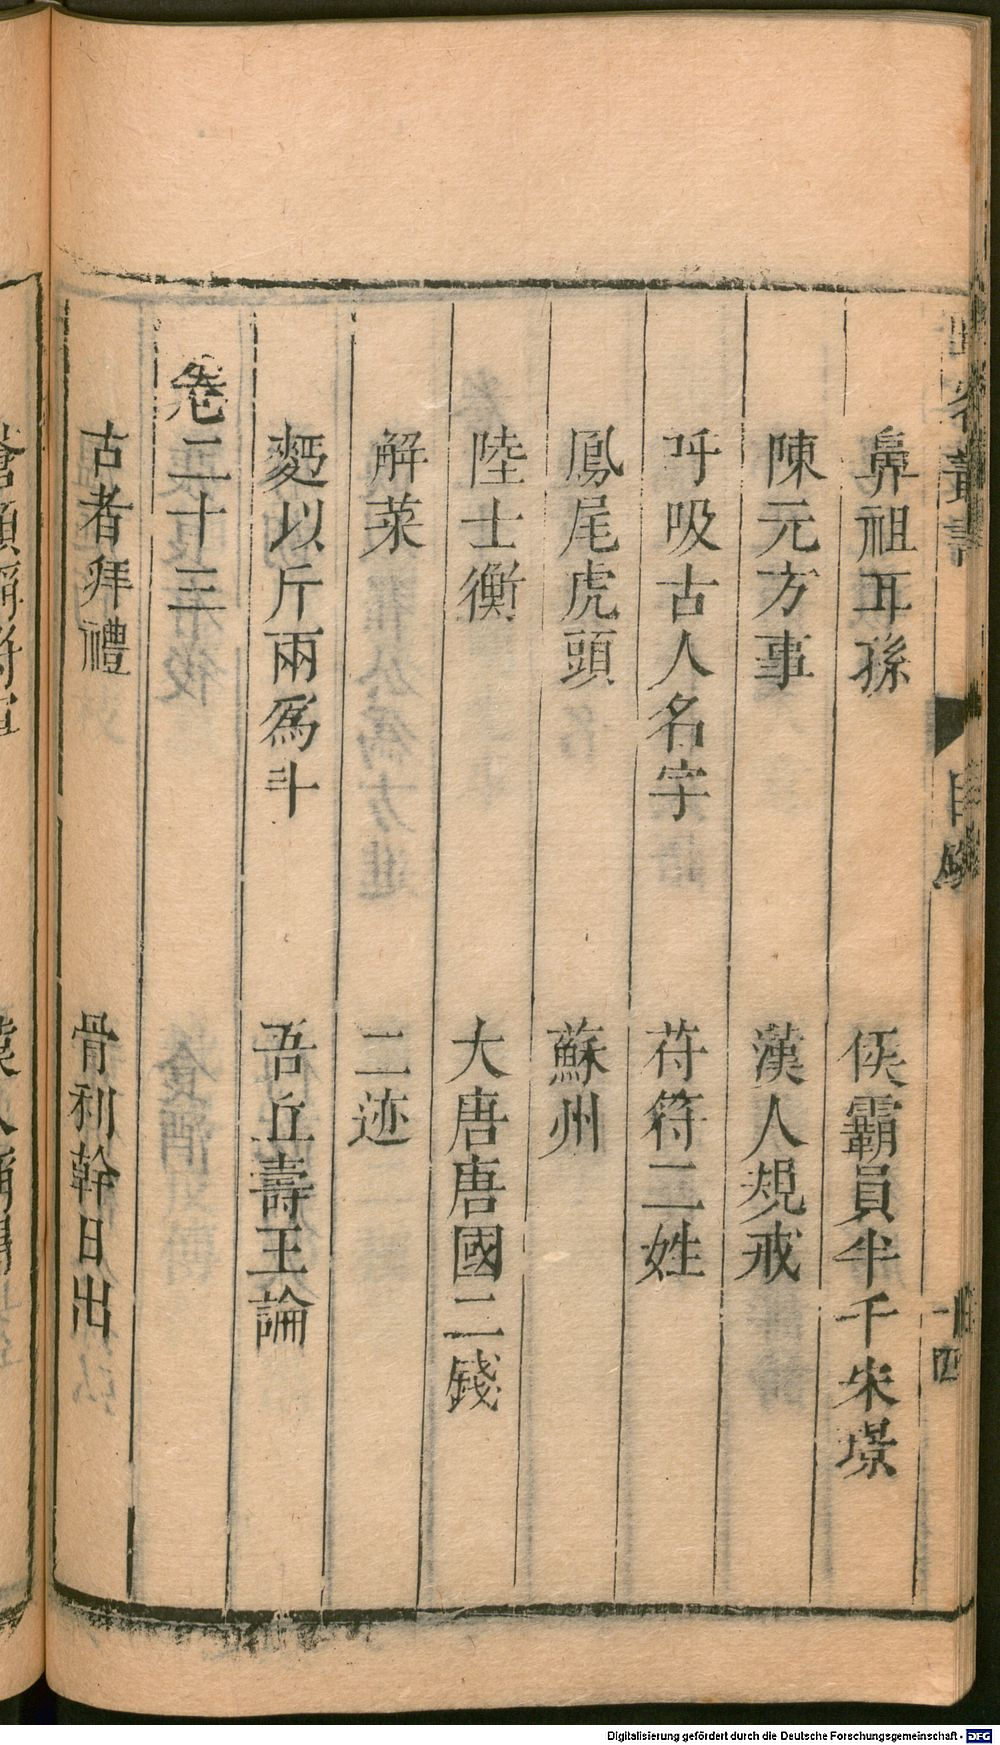 鼻祖耳孫　侯霸員半千宋璟
陳元方事　漢人規戒
呼吸古人名字　苻符二姓
鳳尾虎頭　蘇州
陸士衡　大唐唐國二錢
解菜　二迹
麪以斤兩爲斗　吾丘壽王論
卷二十三
古者拜禮　骨利幹日出
Digitalisierung gefördert durch die Deutsche Forschungsgemeinschaft - DFG